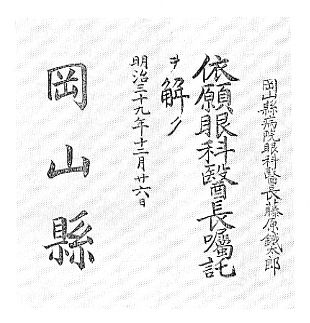 岡山縣病院眼科醫長藤原鐵太郎
依願眼科醫長囑託
ヲ解ク
明治三十九年十二月廿六日
岡山縣